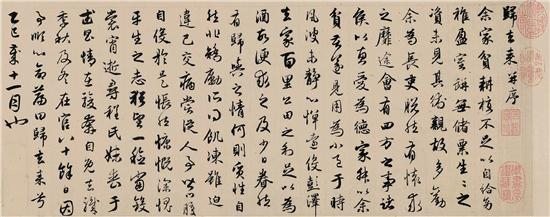 歸去來并序
余家貧耕植不足以自給幼
稚盈室缾無儲粟生生之
資未見其術親故多勸
余為長吏脫然有懷求
之靡途會有四方之事諸
侯以惠愛為德家叔以余
貧苦遂見用為小邑于時
風波未靜心憚遠役彭澤
去家百里公田之利足以為
酒故便求之及少日眷然
有歸與之情何則質性自
然非矯勵所得飢凍雖迫
違己交病嘗從人事皆口腹
自役於是悵然慷慨深愧
平生之志猶望一稔當斂
裳宵逝尋程氏妹喪于
武昌情在駿奔自免去職
仲秋及冬在官八十餘日因
事順心命篇曰歸去來兮
乙巳歲十一月也